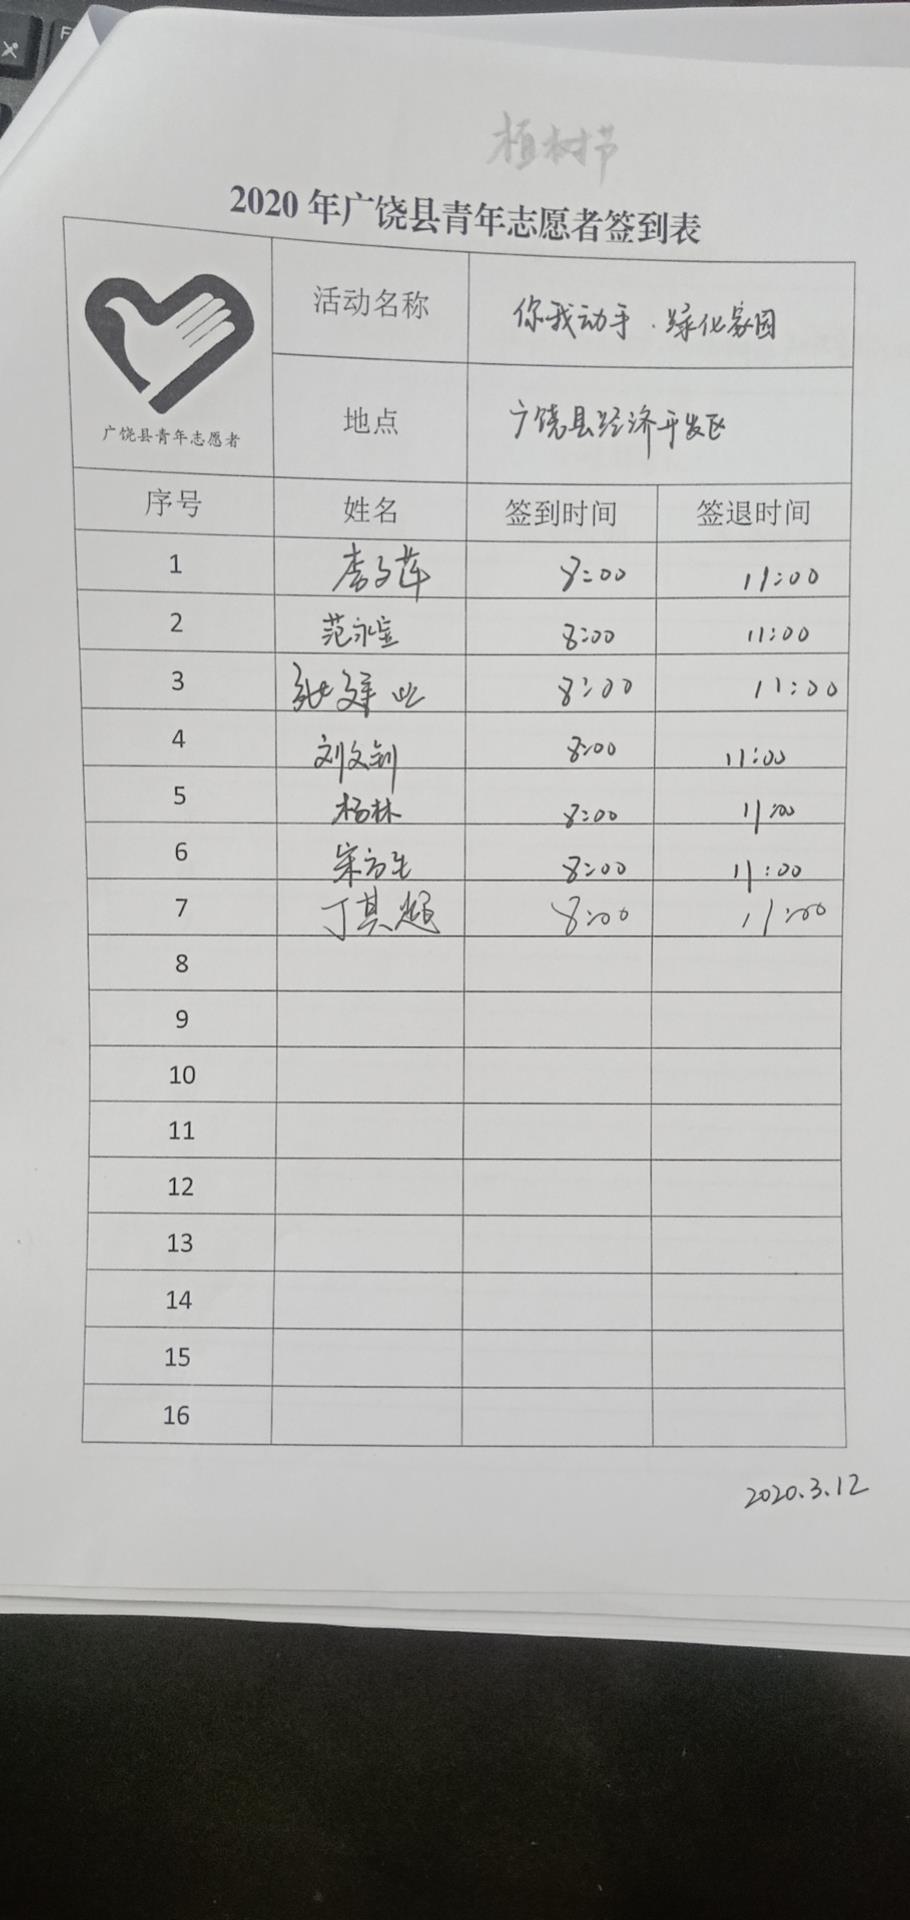 植树节
2020 年广饶县青年志愿者签到表
广饶县青年志愿者
活动名称 你我动手 · 绿化家园
地点 广饶县经济开发区
序号 姓名 签到时间 签退时间
1 李文萍 8:00 11:00
2 范永宝 8:00 11:00
3 8:00 11:00
4 刘文钊 8:00 11:00
5 杨林 8:00 11:00
6 宋方生 8:00 11:00
7 丁其超 8:00 11:00
8
9
10
11
12
13
14
15
16
2020.3.12